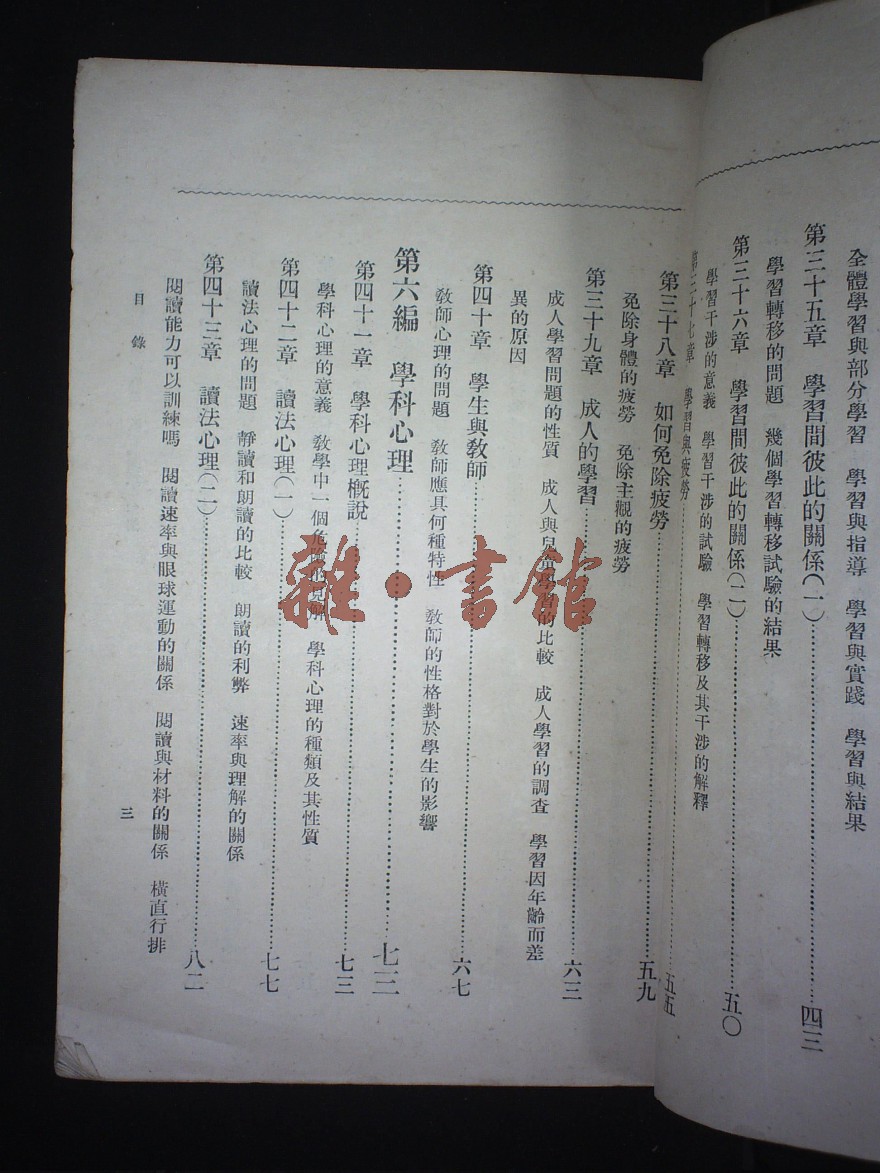 全體學習與部分學習　學習與指導　學習與實踐　學習與結果
第三十五章　學習間彼此的關係(一)……四三
學習轉移的問題　幾個學習轉移試驗的結果
第三十六章　學習間彼此的關係(二)……五〇
學習干涉的意義　學習干涉的試驗　學習轉移及其干涉的解釋
第三十七章　學習與疲勞……五五
第三十八章　如何免除疲勞……五九
免除身體的疲勞　免除主觀的疲勞
第三十九章　成人的學習……六三
成人學習問題的性質　成人與兒童學習的比較　成人學習的調查　學習因年齡而差
異的原因
第四十章　學生與敎師……六七
敎師心理的問題　敎師應具何種特性　敎師的性格對於學生的影響
第六編　學科心理……七三
第四十一章　學科心理槪說……七三
學科心理的意義　敎學中一個危險的見解　學科心理的種類及其性質
第四十二章　讀法心理(一)……七七
讀法心理的問題　靜讀和朗讀的比較　朗讀的利弊　速率與理解的關係
第四十三章　讀法心理(二)……八二
閱讀能力可以訓練嗎　閱讀速率與眼球運動的關係　閱讀與材料的關係　橫直行排
目錄
三
雜·書館